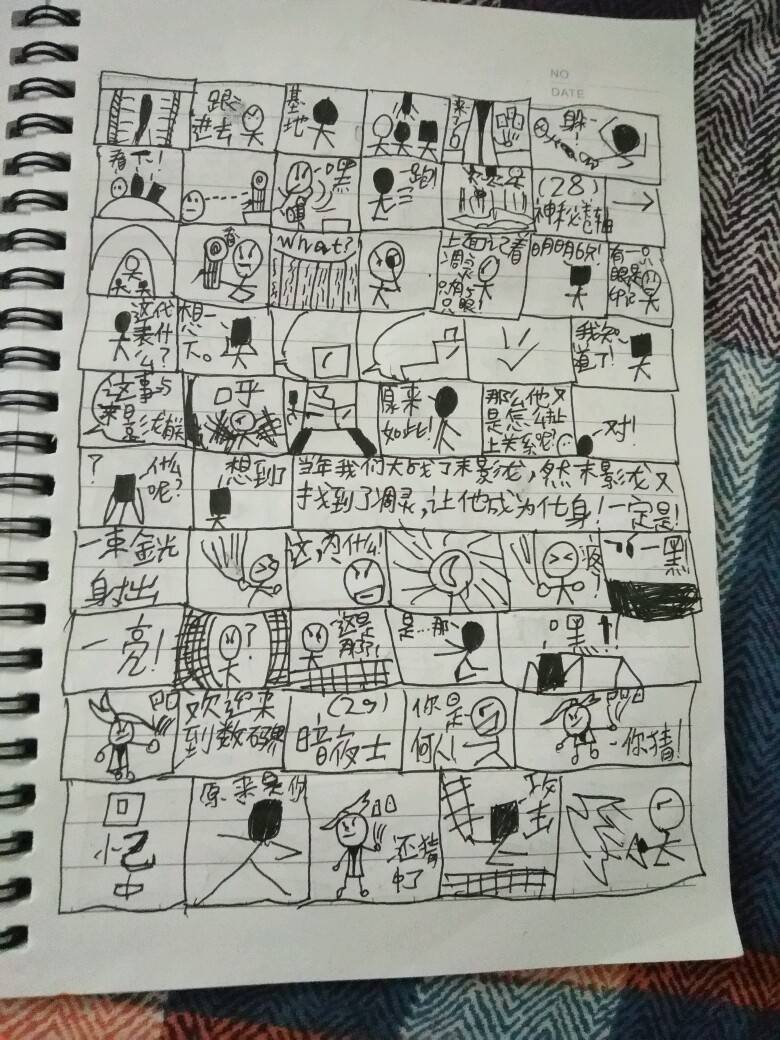 NO
DATE
跟
进去
基地
来了
躲!
看下!
嘿
跑!
(28)
神秘卷轴
看
what?
上面记着
凋灵
只有
明明6只!
有一
眼是
印记
这代
表什
么?
想一
下。
我知
道了!
这事与
末影龙
口乎
原来
如此!
那么他又
是怎么扯
上关系呢?
对!
?
什么
呢?
想到了
当年我们大战了末影龙,然末影龙又
找到了凋灵,让他成为化身!一定是!
一束金光
射出
这,为什么!
疼!
一黑!
一亮!
?
这是
那!
是…那
嘿!
欢迎来
到数码界
(29)
暗夜士
你是
何人!
你猜!
回
忆
中
原来是你
还猜
中了
攻
击